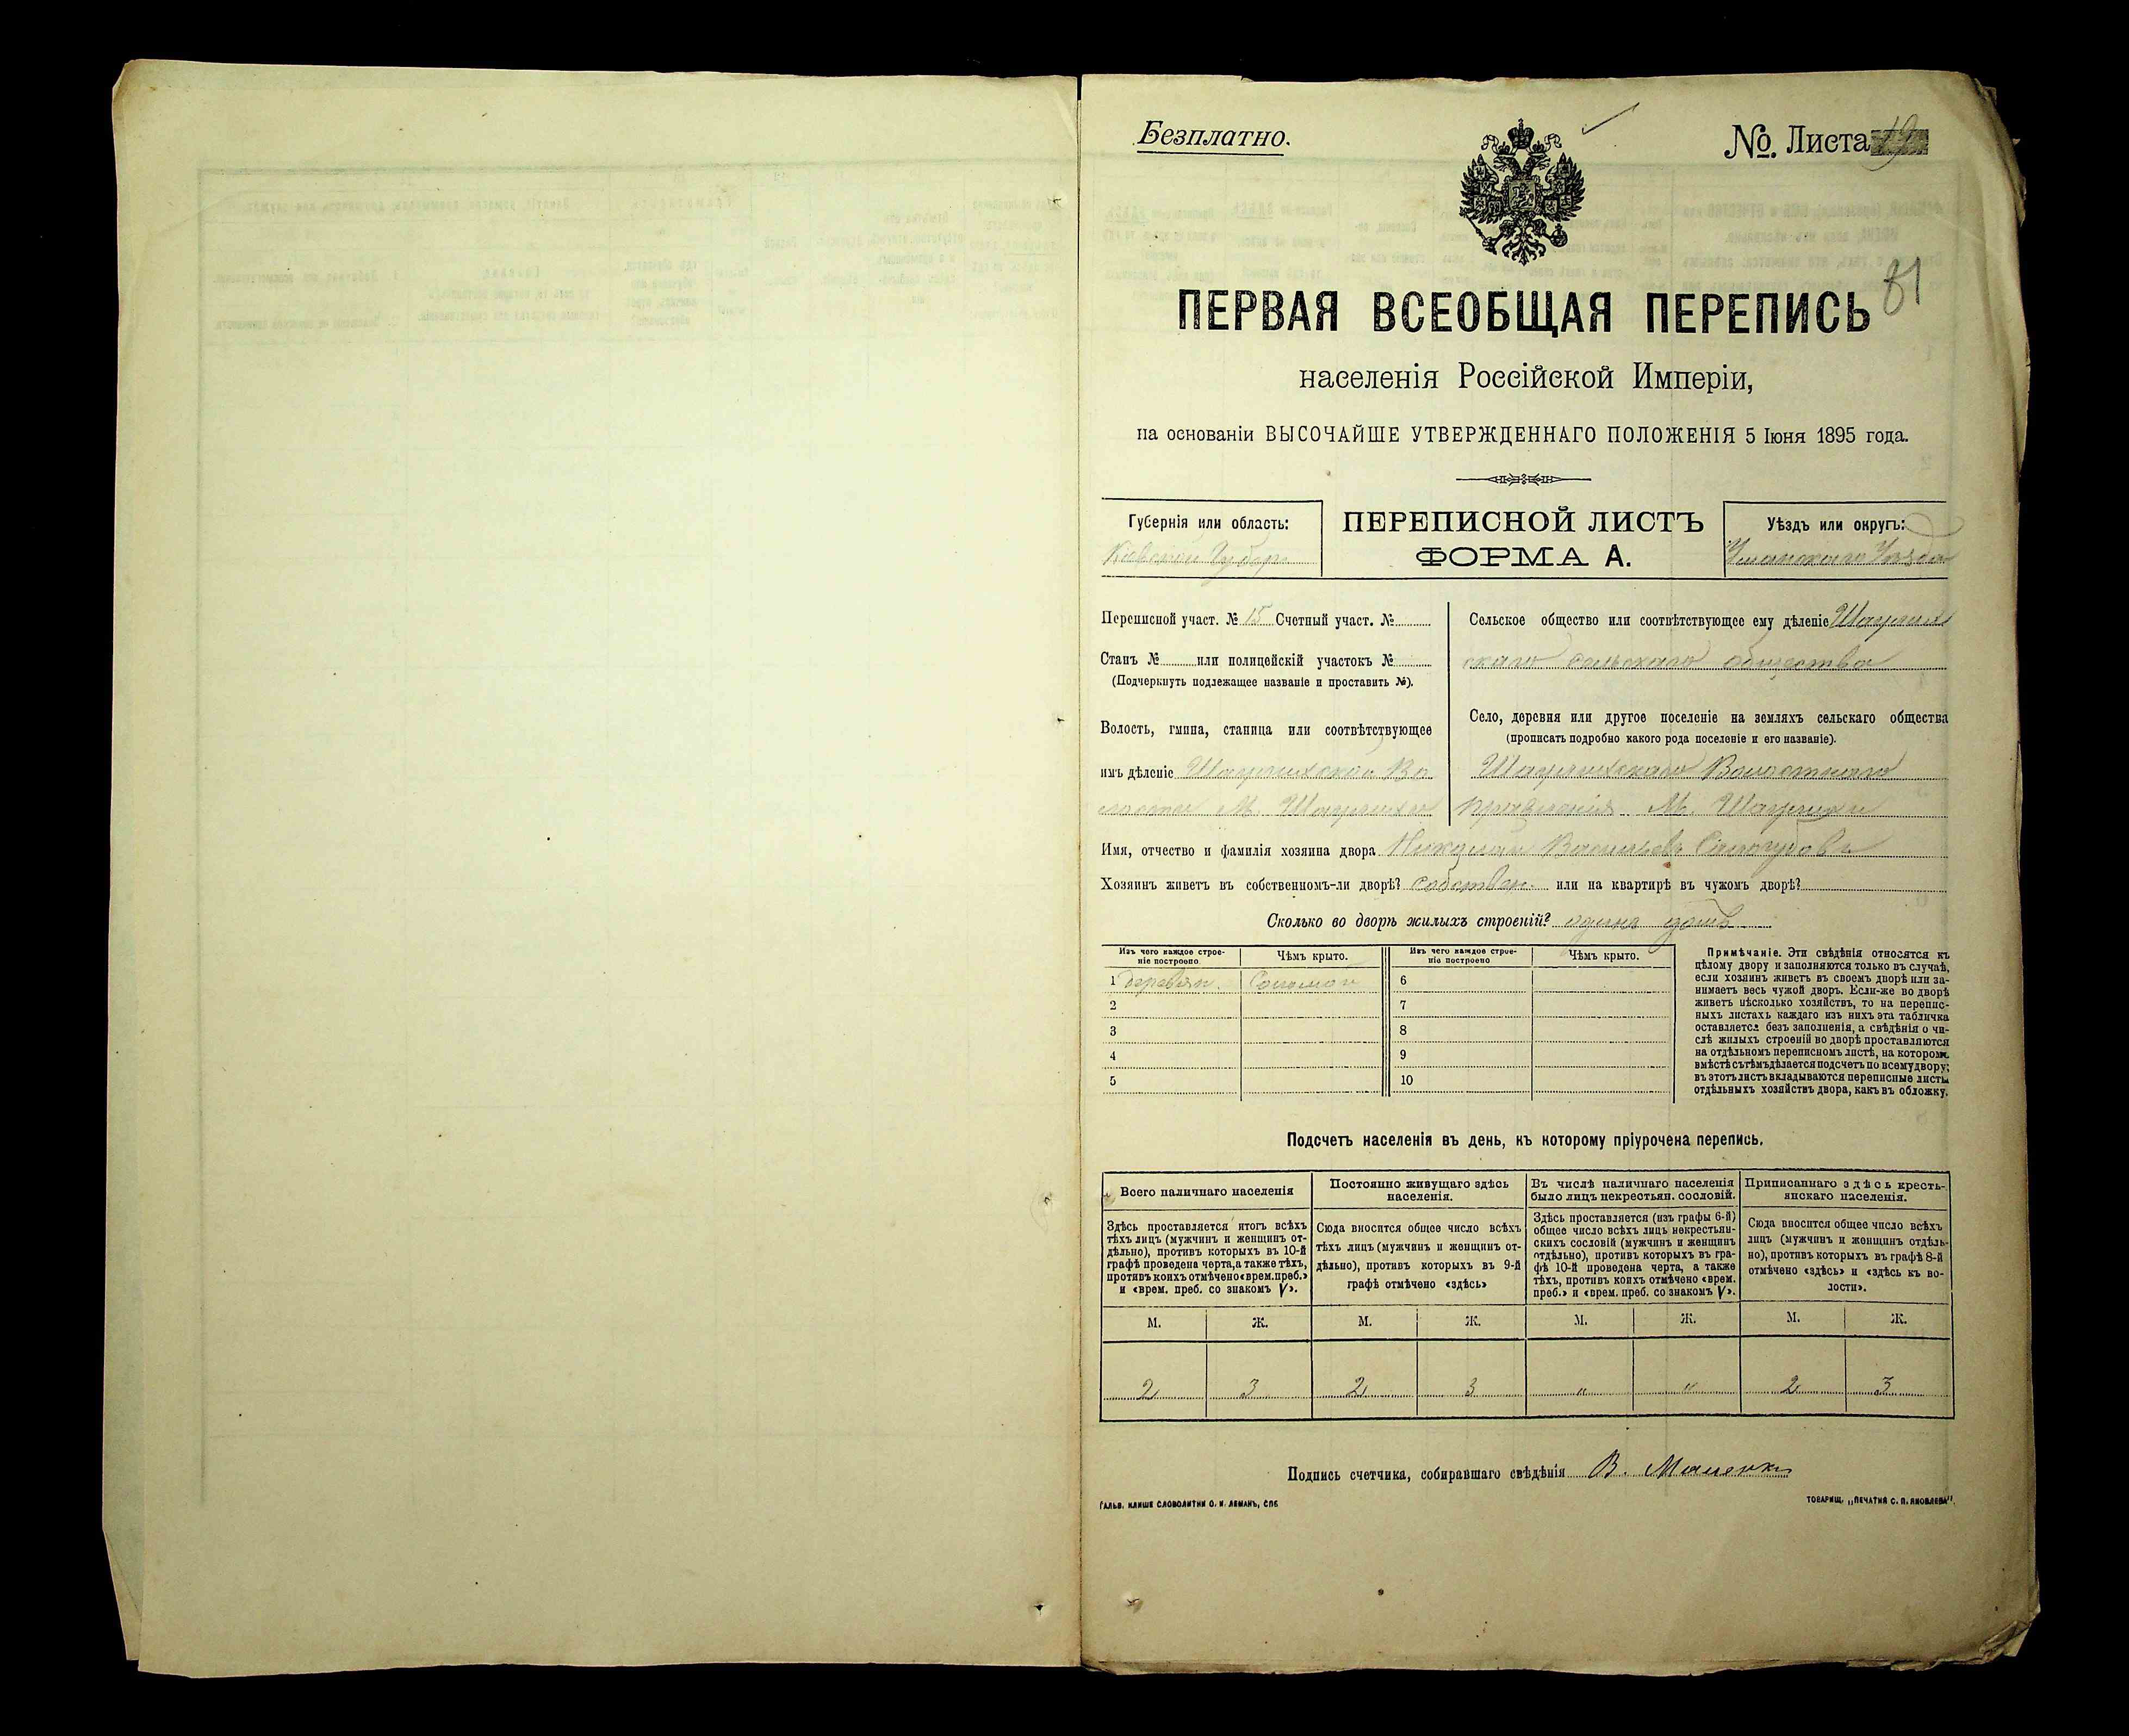 Безплатно.
№. Листа 19
81
ПЕРВАЯ ВСЕОБЩАЯ ПЕРЕПИСЬ
населенія Россійской Имперіи,
на основаніи ВЫСОЧАЙШЕ УТВЕРЖДЕННАГО ПОЛОЖЕНІЯ 5 Іюня 1895 года.
Губернія или область:
Кіевской Губер.
ПЕРЕПИСНОЙ ЛИСТЪ
ФОРМА А.
Уѣздъ или округъ:
Уманскаго Уѣзда
Переписной участ. № 15 Счетный участ. №
Станъ № или полицейскій участокъ №
(Подчеркнуть подлежащее названіе и проставить №).
Волость, гмина, станица или соотвѣтствующее
имъ дѣленіе
Сельское общество или соотвѣтствующее ему дѣленіе
скаго сельскаго общества
Село, деревня или другое поселеніе на земляхъ сельскаго общества
(прописать подробно какого рода поселеніе и его названіе).
Волостного
правленія М.
Имя, отчество и фамилія хозяина двора Васильевъ
Хозяинъ живетъ въ собственномъ-ли дворѣ? собствен. или на квартирѣ въ чужомъ дворѣ?
Сколько во дворѣ жилыхъ строеній? одинъ домъ
Изъ чего каждое строе-
ніе построено
Чѣмъ крыто.
Изъ чего каждое строе-
ніе построено
Чѣмъ крыто.
1 деревян. Соломой 6
2 7
3 8
4 9
5 10
Примѣчаніе. Эти свѣдѣнія относятся къ
цѣлому двору и заполняются только въ случаѣ,
если хозяинъ живетъ въ своемъ дворѣ или за-
нимаетъ весь чужой дворъ. Если-же во дворѣ
живетъ нѣсколько хозяйствъ, то на перепис-
ныхъ листахъ каждаго изъ нихъ эта табличка
оставляется безъ заполненія, а свѣдѣнія о чи-
слѣ жилыхъ строеній во дворѣ проставляются
на отдѣльномъ переписномъ листѣ, на которомъ
вмѣстѣ съ тѣмъ дѣлается подсчетъ по всему двору;
въ этотъ листъ вкладываются переписные листы
отдѣльныхъ хозяйствъ двора, какъ въ обложку.
Подсчетъ населенія въ день, къ которому пріурочена перепись.
Всего наличнаго населенія
Постоянно живущаго здѣсь
населенія.
Въ числѣ наличнаго населенія
было лицъ некрестьян. сословій.
Приписаннаго здѣсь кресть-
янскаго населенія.
Здѣсь проставляется итогъ всѣхъ
тѣхъ лицъ (мужчинъ и женщинъ от-
дѣльно), противъ которыхъ въ 10-й
графѣ проведена черта, а также тѣхъ,
противъ коихъ отмѣчено «врем. преб.»
и «врем. преб. со знакомъ V».
Сюда вносится общее число всѣхъ
тѣхъ лицъ (мужчинъ и женщинъ от-
дѣльно), противъ которыхъ въ 9-й
графѣ отмѣчено «здѣсь»
Здѣсь проставляется (изъ графы 6-й)
общее число всѣхъ лицъ некрестьян-
скихъ сословій (мужчинъ и женщинъ
отдѣльно), противъ которыхъ въ гра-
фѣ 10-й проведена черта, а также
тѣхъ, противъ коихъ отмѣчено «врем.
преб.» и «врем. преб. со знакомъ V».
Сюда вносится общее число всѣхъ
лицъ (мужчинъ и женщинъ отдѣль-
но), противъ которыхъ въ графѣ 8-й
отмѣчено «здѣсь» и «здѣсь къ во-
лости».
М. Ж. М. Ж. М. Ж. М. Ж.
2 3 2 3 " " 2 3
Подпись счетчика, собиравшаго свѣдѣнія В.
ГАЛЬВ. КЛИШЕ СЛОВОЛИТНИ О. И. ЛЕМАНЪ, СПБ
ТОВАРИЩ. „ПЕЧАТНЯ С. П. ЯКОВЛЕВА".